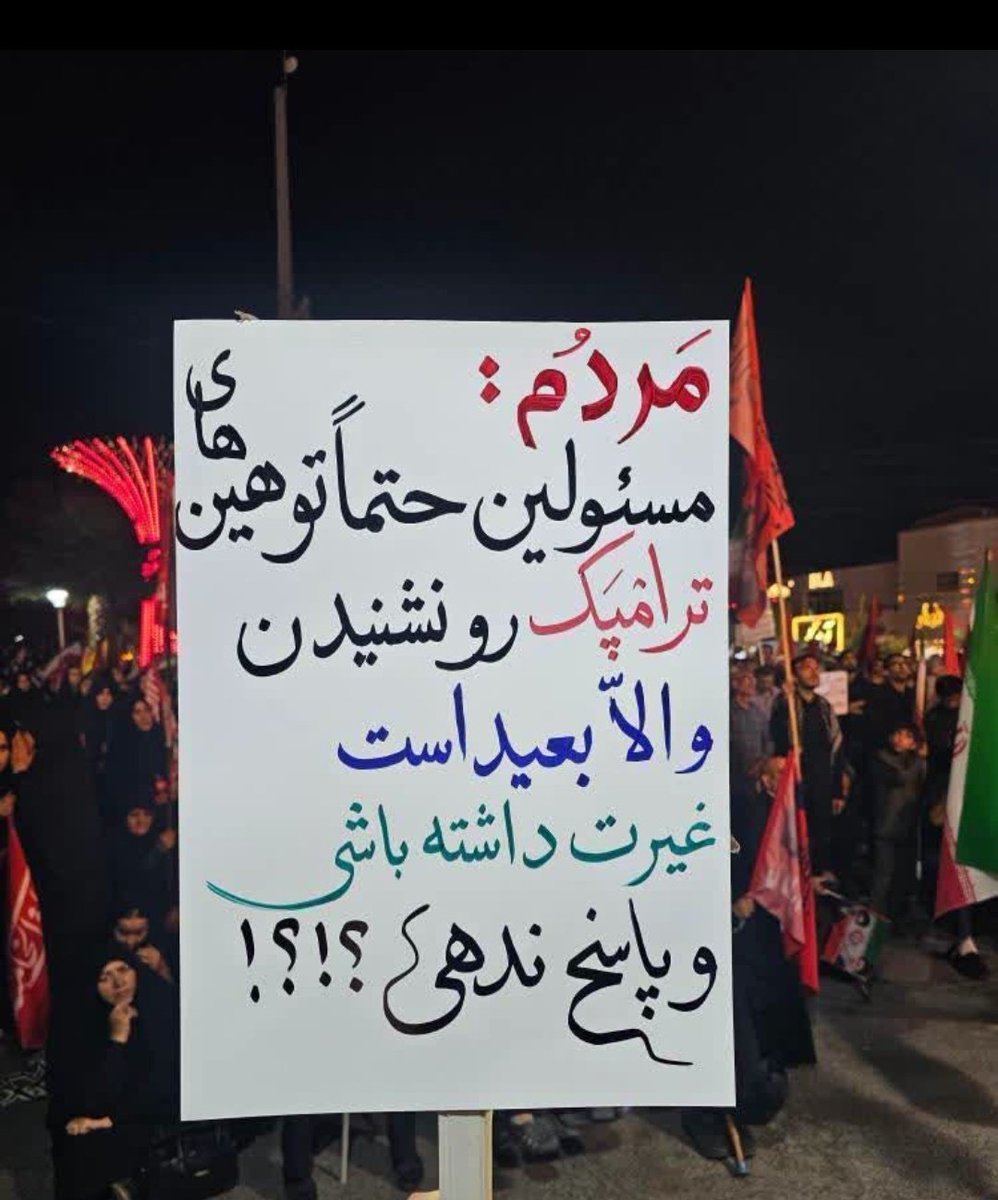 مَردُم :
مسئولین حتماً توهین های
ترامپَک رو نشنیدن
والاّ بعید است
غیرت داشته باشی
و پاسخ ندهی ؟!؟!